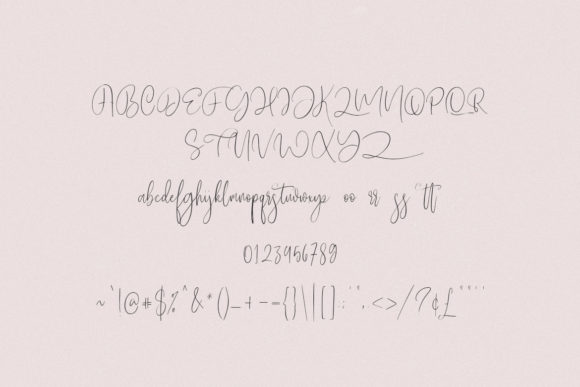 ABCDEFGHIJKLMNOPQR
STUVWXYZ
abcdefghijklmnopqrstuvwxyz oo rr ss tt
0123456789
~`!@#$%^&*()_+-={}\|[]:;"',<>/?¢£“”‘’